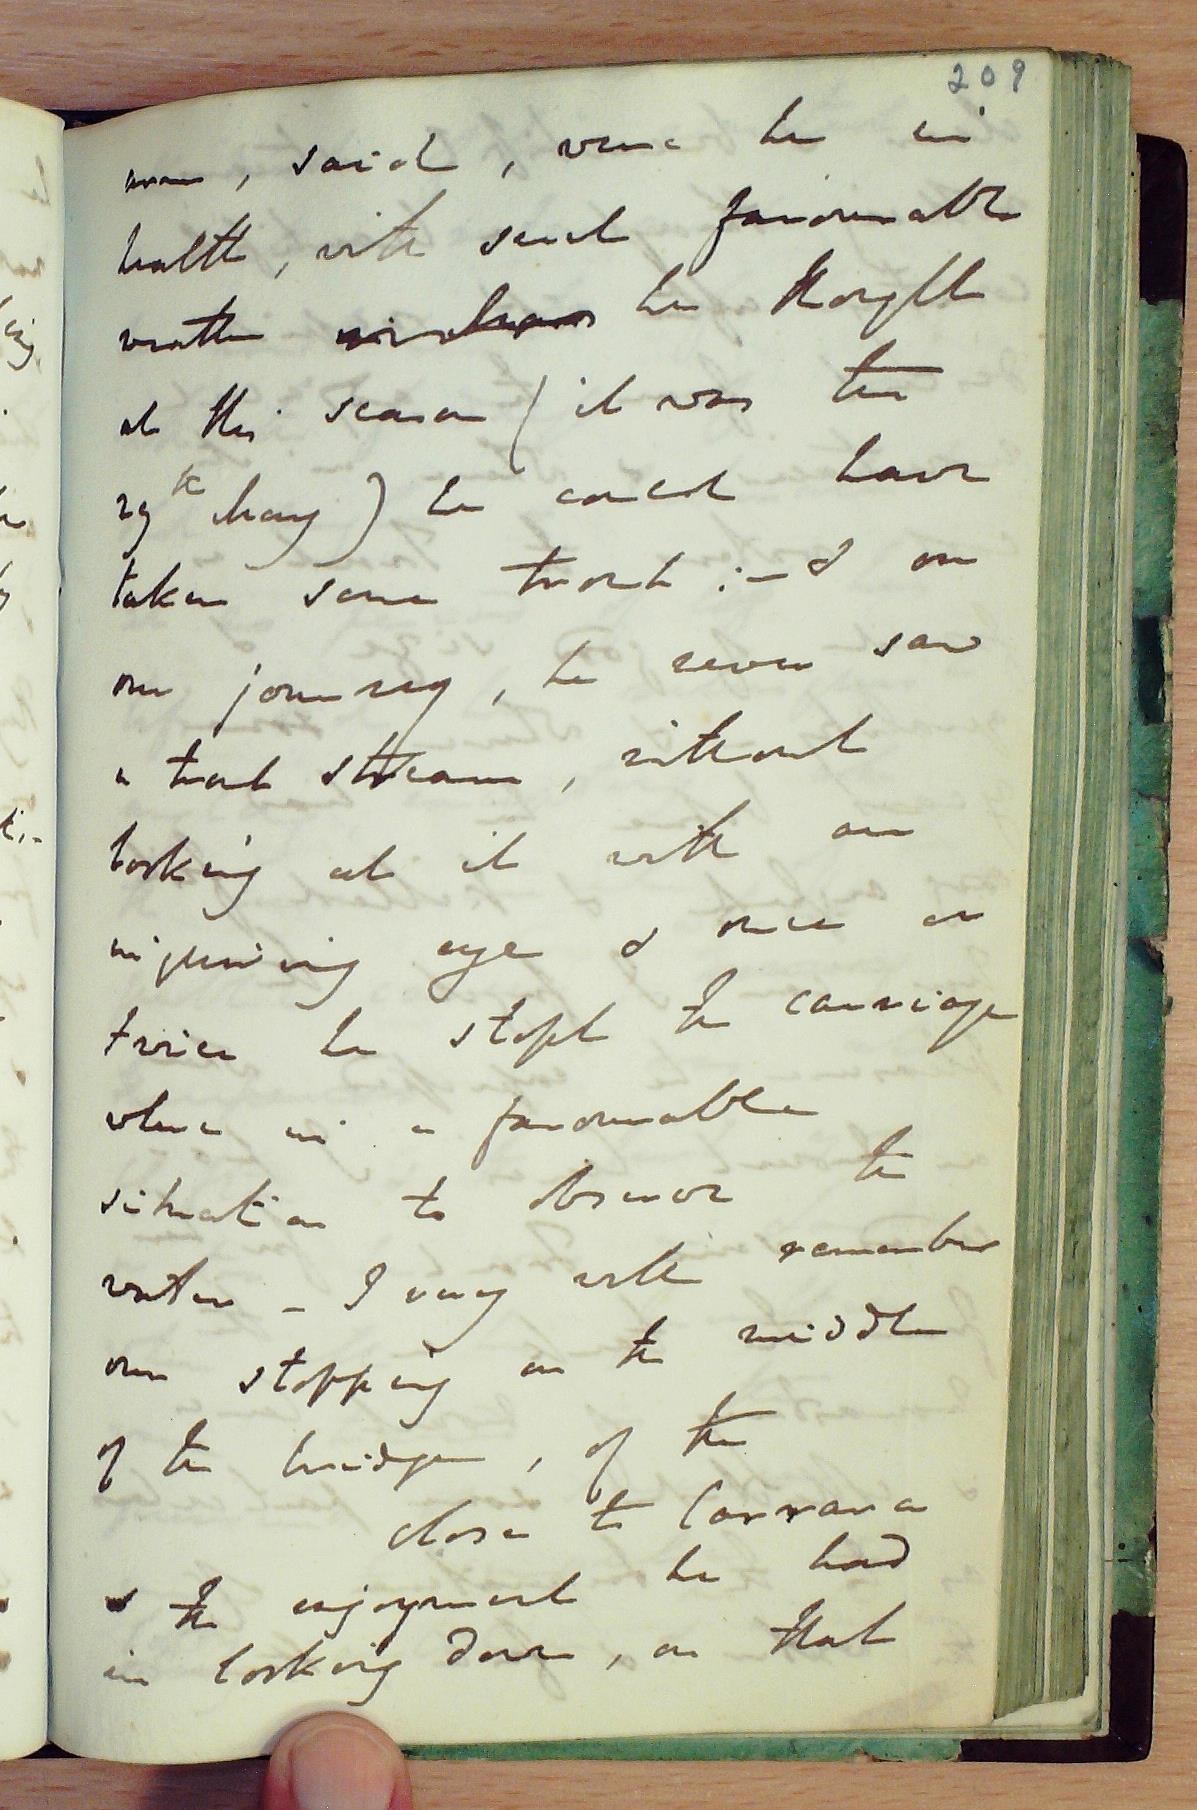 209
, said, were he in
health, with such favourable
weather he thought
at this season (it was the
29th May) he could have
taken some trout: and on
our journey, he never saw
a trout stream, without
looking at it with an
inquiring eye & once or
twice he stopt the carriage
when in a favourable
situation to observe the
water - I very well remember
our stopping on the middle
of the bridge, of the
close to Carrara
& the enjoyment he had
in looking down, on that